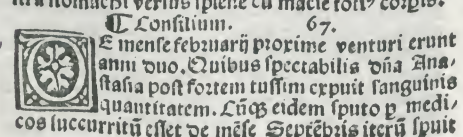 ſtomachi verſus ſplenē cū macie totiꝰ corpis.
¶ Conſilium. 67.
DE menſe februarij proxime venturi erunt
anni duo. Quibus ſpectabilis dña Ana⸗
ſtaſia poſt fortem tuſſim expuit ſanguinis
quantitatem. Cūqꝫ eidem ſputo ꝑ medi⸗
cos ſuccurritū eſſet de mēſe Septēbris iterū ſpuit